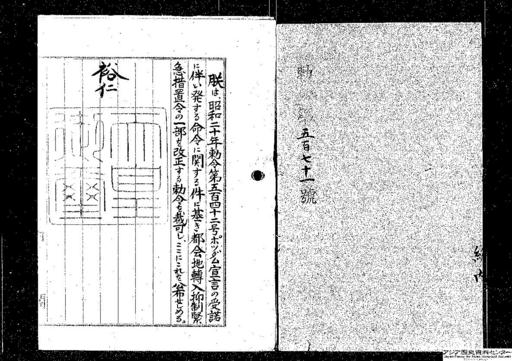 五百七十一號
朕は、昭和二十年勅令第五百四十二号ポツダム宣言の受諾
に伴い発する命令に関する件に基き都会地轉入抑制緊
急措置令の一部を改正する勅令を裁可し、ここにこれを公布せしめる。
裕仁
天皇
御璽
アジア歴史資料センター